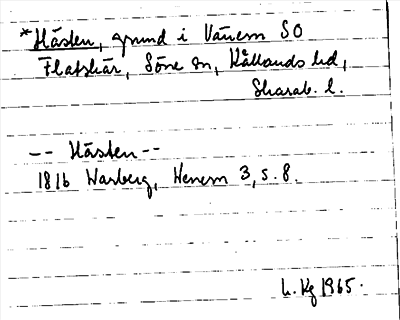 *Hästen, grund i Vänern SO
Flatskär, Söne sn, Kållands hd,
Skarab. l.
-- Hästen --
1816 Warberg, Wenern 3, s. 8.
L. Kg 1965.